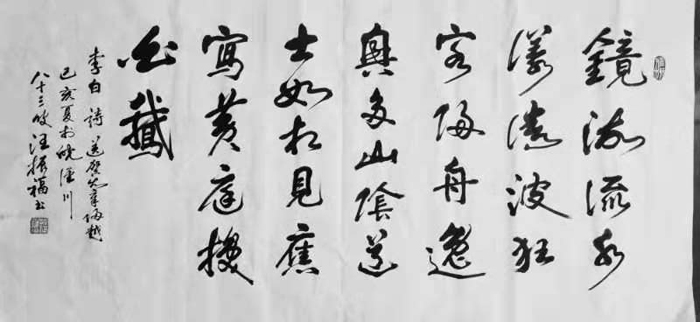 鏡湖流水
漾清波狂
客歸舟逸
興多山陰道
士如相見應
寫黃庭換
白鵝
李白詩 送賀知章歸越
己亥夏於皖潛川
八十三叟汪振福書